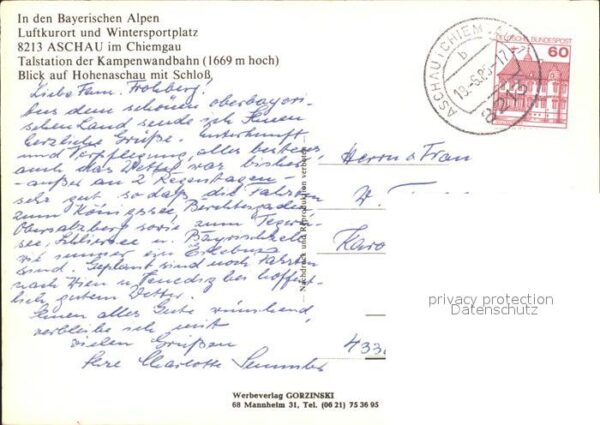 In den Bayerischen Alpen
Luftkurort und Wintersportplatz
8213 ASCHAU im Chiemgau
Talstation der Kampenwandbahn (1669 m hoch)
Blick auf Hohenaschau mit Schloß
Liebe Fam. Frohberg!
Aus dem schönen oberbayri-
schen Land sende ich Ihnen
herzliche Grüße. Unterkunft
und Verpflegung, alles bestens,
auch das Wetter war bisher,
- außer an 2 Regentagen -
sehr gut so daß die Fahrten
zum Königssee, Berchtesgaden
Obersalzberg sowie zum Tegern-
see, Schliersee u. Bayrischzell
wie immer ein Erlebnis
sind. Geplant sind noch Fahrten
nach Wien u. Venedig bei hoffent-
lich gutem Wetter.
Ihnen alles Gute wünschend,
verbleibe ich mit
vielen Grüßen
Ihre Charlotte
ASCHAU I CHIEMGAU
b
19.-6.85-17
8213
DEUTSCHE BUNDESPOST
60
Herrn u. Frau
W.
Karo
433
Nachdruck und Reproduktion verboten
privacy protection
Datenschutz
Werbeverlag GORZINSKI
68 Mannheim 31, Tel. (06 21) 75 36 95